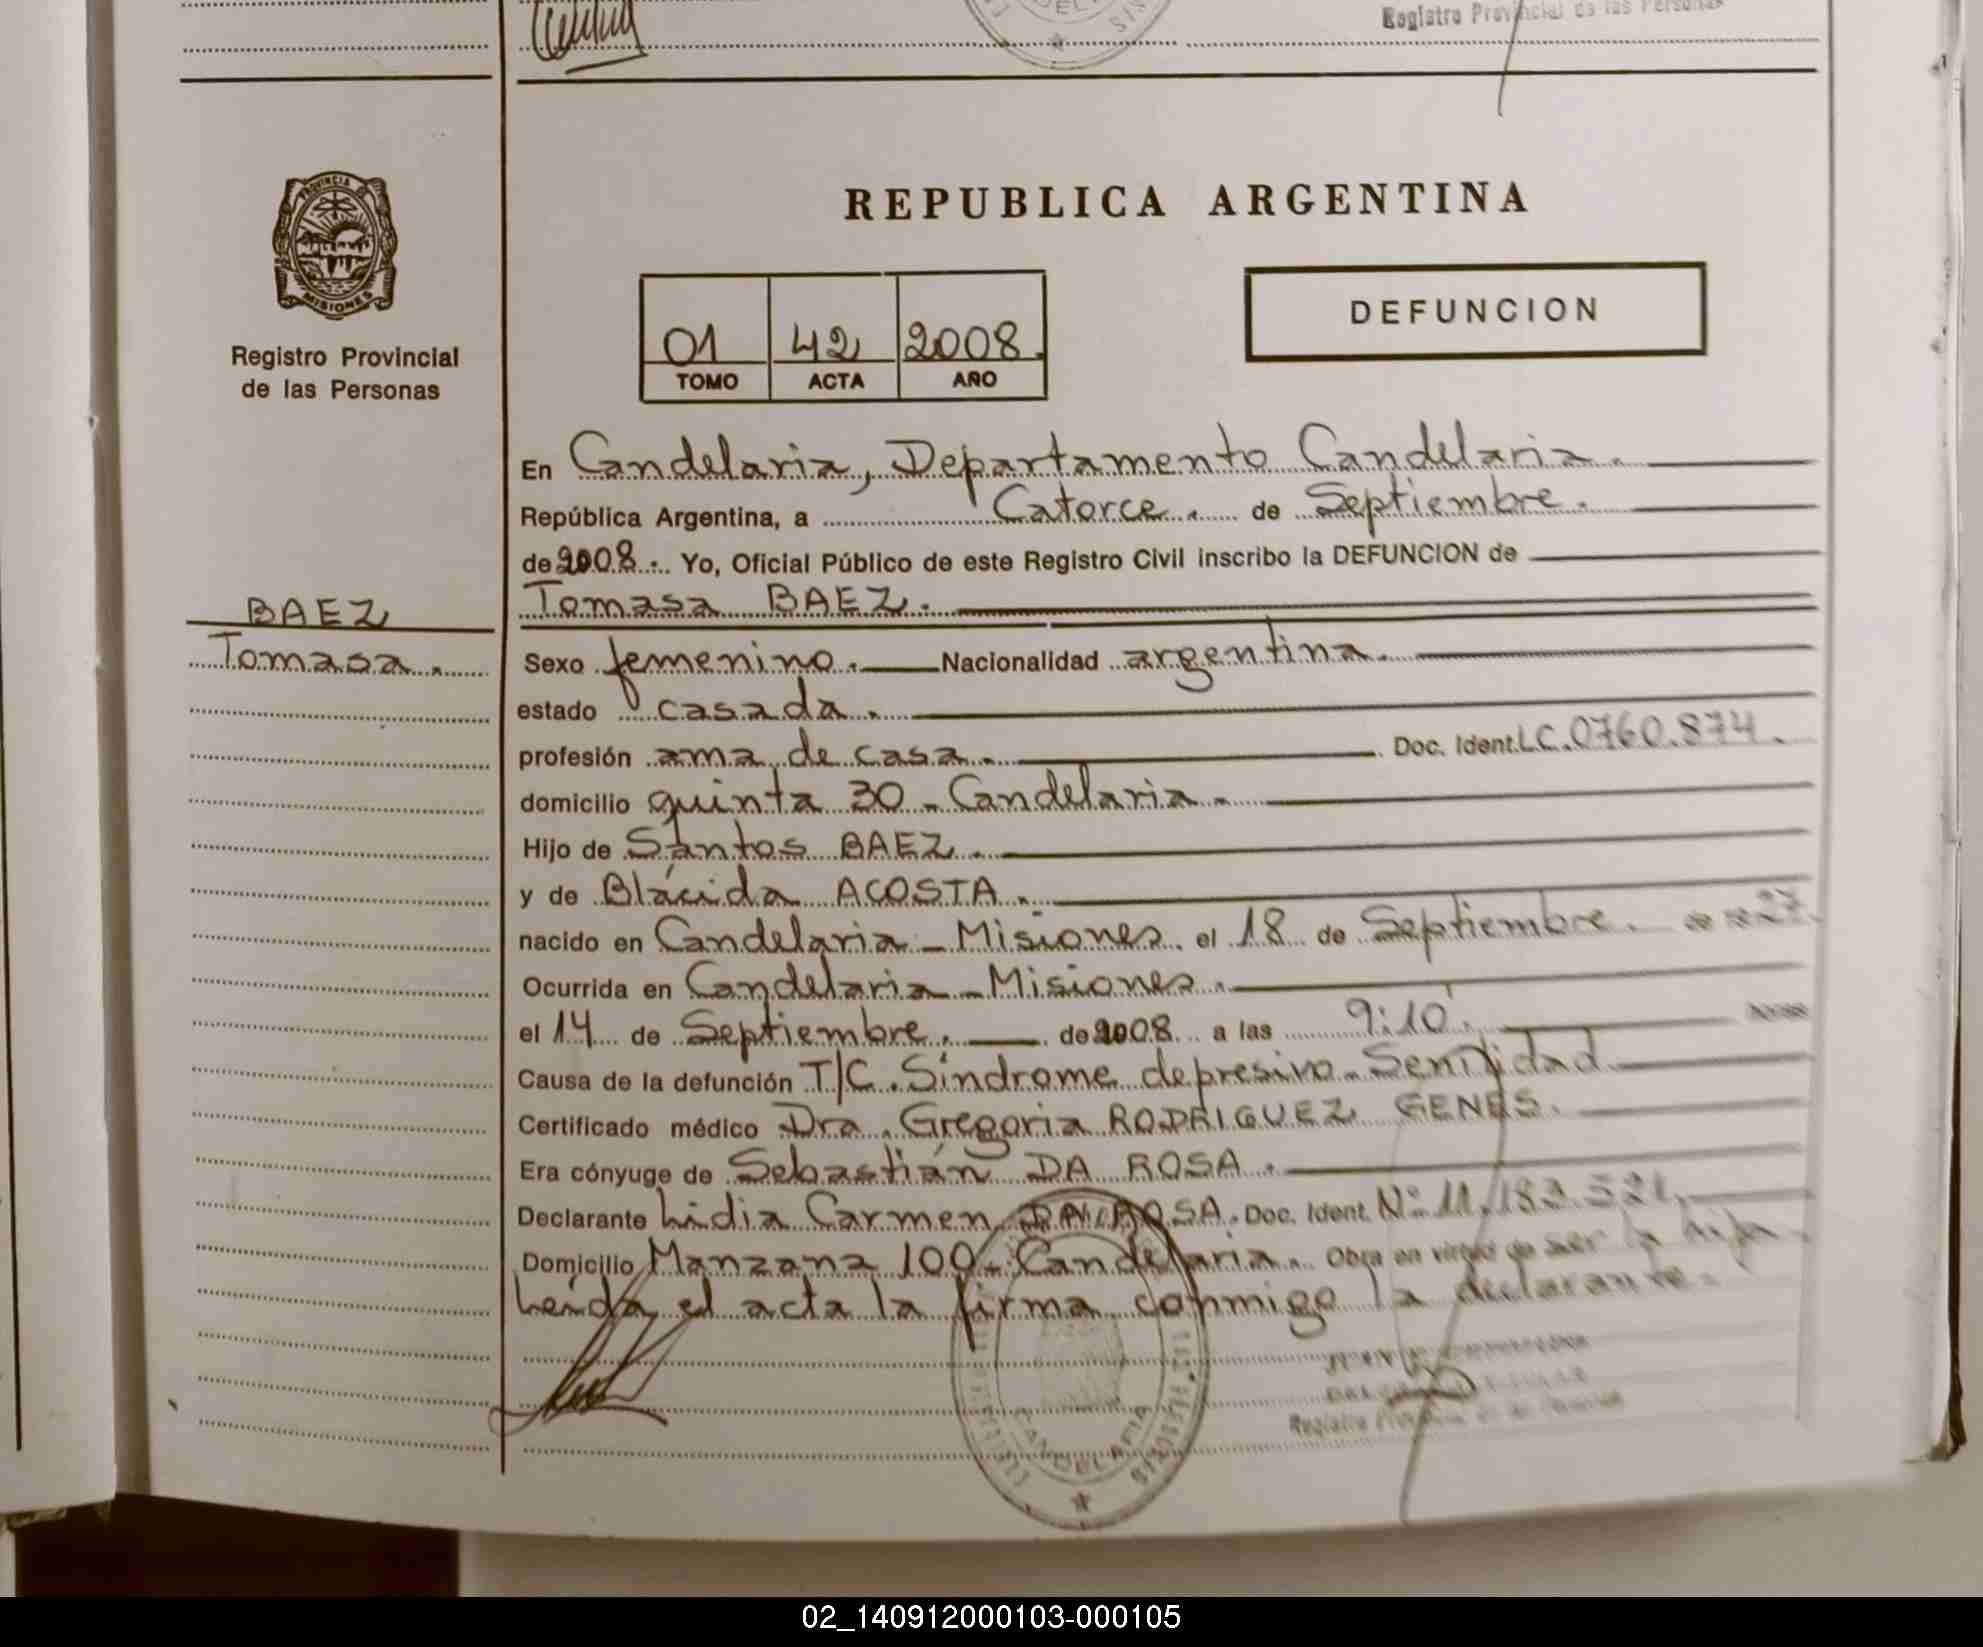 Registro Provincial de las Personas
PROVINCIA D
MISIONES
Registro Provincial
de las Personas
REPUBLICA ARGENTINA
01 42 2008.
TOMO ACTA AÑO
DEFUNCION
En Candelaria, Departamento Candelaria.
República Argentina, a Catorce. de Septiembre.
de 2008. Yo, Oficial Público de este Registro Civil inscribo la DEFUNCION de
BAEZ
Tomasa.
Tomasa BAEZ.
Sexo femenino. Nacionalidad argentina.
estado casada.
profesión ama de casa. Doc. Ident. LC.0760.874.
domicilio quinta 30 - Candelaria.
Hijo de Santos BAEZ.
y de Blácida ACOSTA.
nacido en Candelaria - Misiones. el 18 de Septiembre. 27.
Ocurrida en Candelaria - Misiones.
el 14 de Septiembre. de 2008. a las 9:10'. horas
Causa de la defunción T/C. Síndrome depresivo - Senilidad
Certificado médico Dra. Gregoria RODRIGUEZ GENES.
Era cónyuge de Sebastián DA ROSA.
Declarante Lidia Carmen DA ROSA. Doc. Ident. Nº 11.183.521.
Domicilio Manzana 100 - Candelaria. Obra en virtud de ser la hija.
Leída el acta la firma conmigo la declarante.
CANDELARIA
MISIONES
Registro Provincial de las Personas
02_140912000103-000105